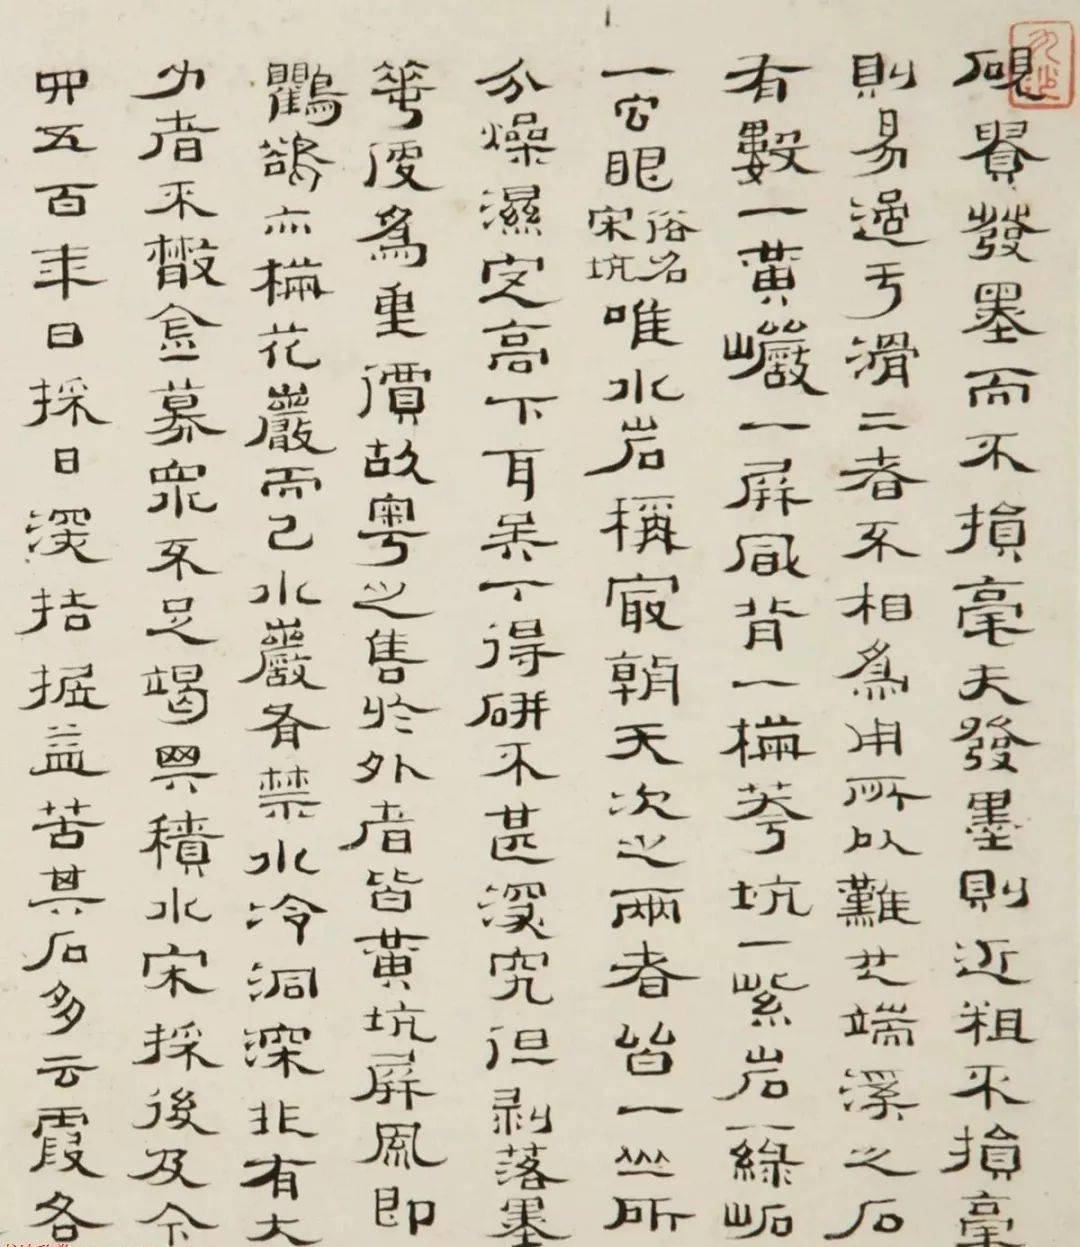 硯貴發墨而不損毫夫發墨則近粗不損毫
則易過于滑二者不相爲用所以難也端溪之石
有數一黃巖一屛風背一梅花坑一紫岩一綠岩
一眼俗名宋坑唯水岩稱㝡朝天次之兩者皆一山所
分燥濕定高下耳吳下得研不甚深究但剥落墨
華便爲重價故粤之售於外者皆黃坑屛風即
鸜鵒亦梅花巖而已水巖有禁水冷洞深非有大
力者不敢僉募衆不足竭其積水宋採後及今
四五百年日採日深括掘益苦其石多云霞各